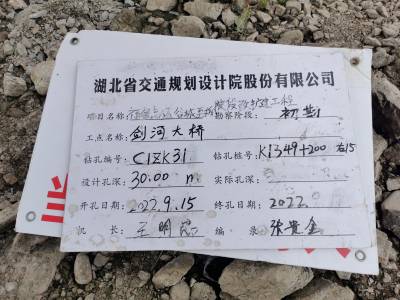 湖北省交通规划设计院股份有限公司
项目名称: 段改扩建工程
勘察阶段: 初勘
工点名称: 剑河大桥
钻孔编号: CIZK31 钻孔桩号: K1349+200 右15
设计孔深: 30.00 m 实际孔深:
开孔日期: 2022.9.15 终孔日期: 2022.
机 长: 王明 编 录: 张贵全